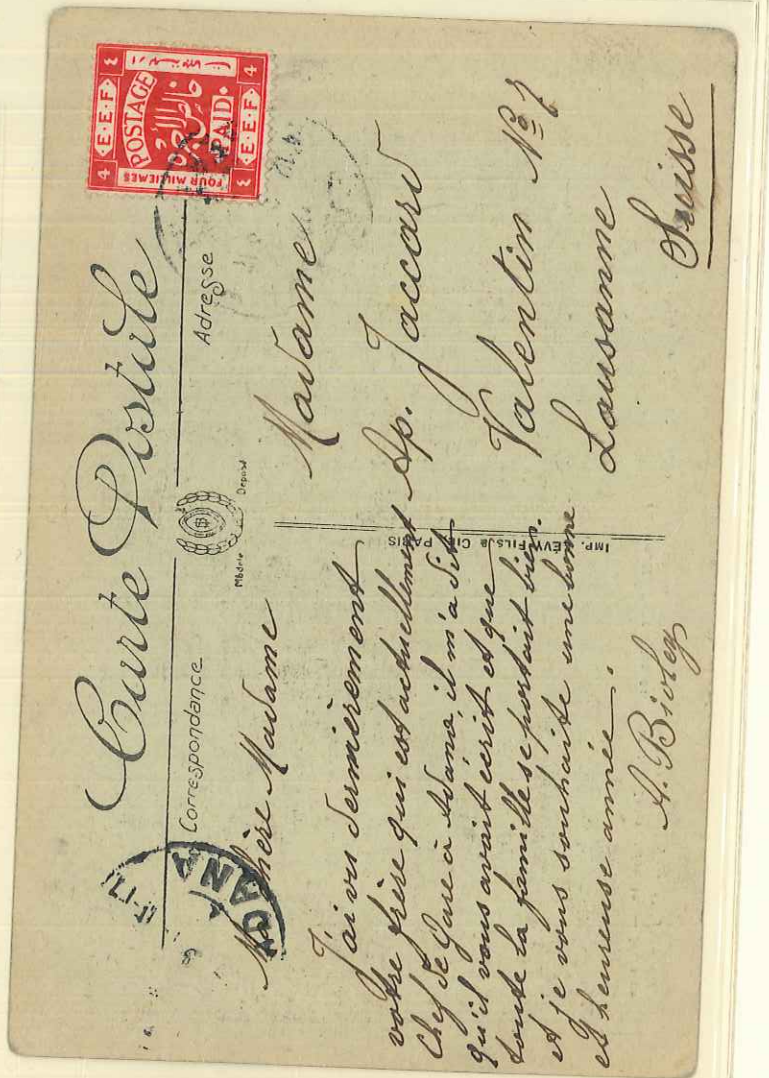 Carte Postale
Correspondance
Adresse
Modèle
Déposé
IMP. LÉVY FILS & Cie PARIS
E·E·F
POSTAGE
PAID.
خالص الأجرة
FOUR MILLIEMES
4 E·E·F 4
ADANA
Ma chère Madame
J'ai vu dernièrement
votre frère qui est actuellement
Chef de Gare à Adana, il m'a dit
qu'il vous avait écrit et que
toute la famille se portait bien.
et je vous souhaite une bonne
et heureuse année.
A. Bioley
Madame
Ap. Jaccard
Valentin No 7
Lausanne
Suisse